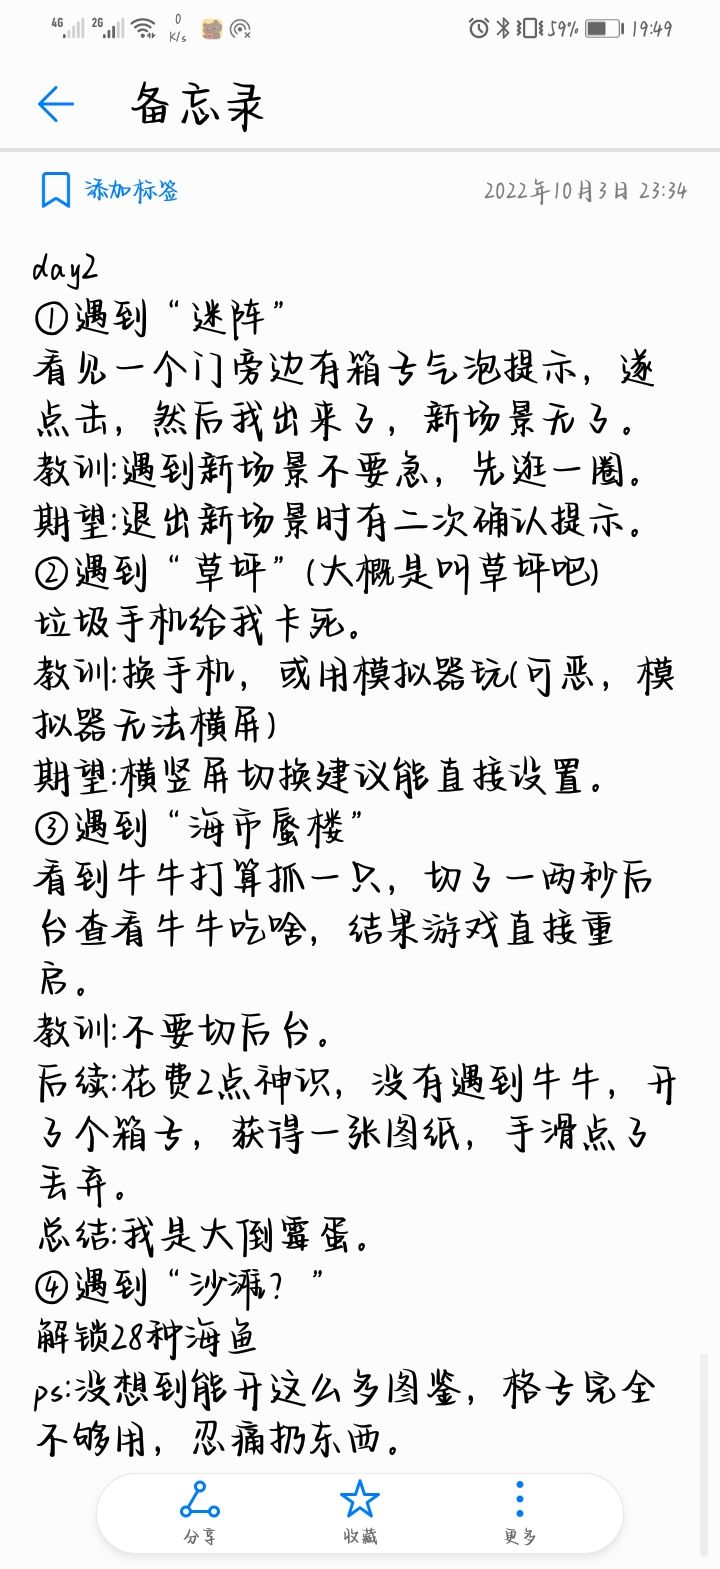 4G 2G 0 K/s 59% 19:49
备忘录
添加标签 2022年10月3日 23:34
day2
①遇到“迷阵”
看见一个门旁边有箱子气泡提示，遂
点击，然后我出来了，新场景无了。
教训:遇到新场景不要急，先逛一圈。
期望:退出新场景时有二次确认提示。
②遇到“草坪”(大概是叫草坪吧)
垃圾手机给我卡死。
教训:换手机，或用模拟器玩(可恶，模
拟器无法横屏)
期望:横竖屏切换建议能直接设置。
③遇到“海市蜃楼”
看到牛牛打算抓一只，切了一两秒后
台查看牛牛吃啥，结果游戏直接重
启。
教训:不要切后台。
后续:花费2点神识，没有遇到牛牛，开
了个箱子，获得一张图纸，手滑点了
丢弃。
总结:我是大倒霉蛋。
④遇到“沙滩？”
解锁28种海鱼
ps:没想到能开这么多图鉴，格子完全
不够用，忍痛扔东西。
分享 收藏 更多